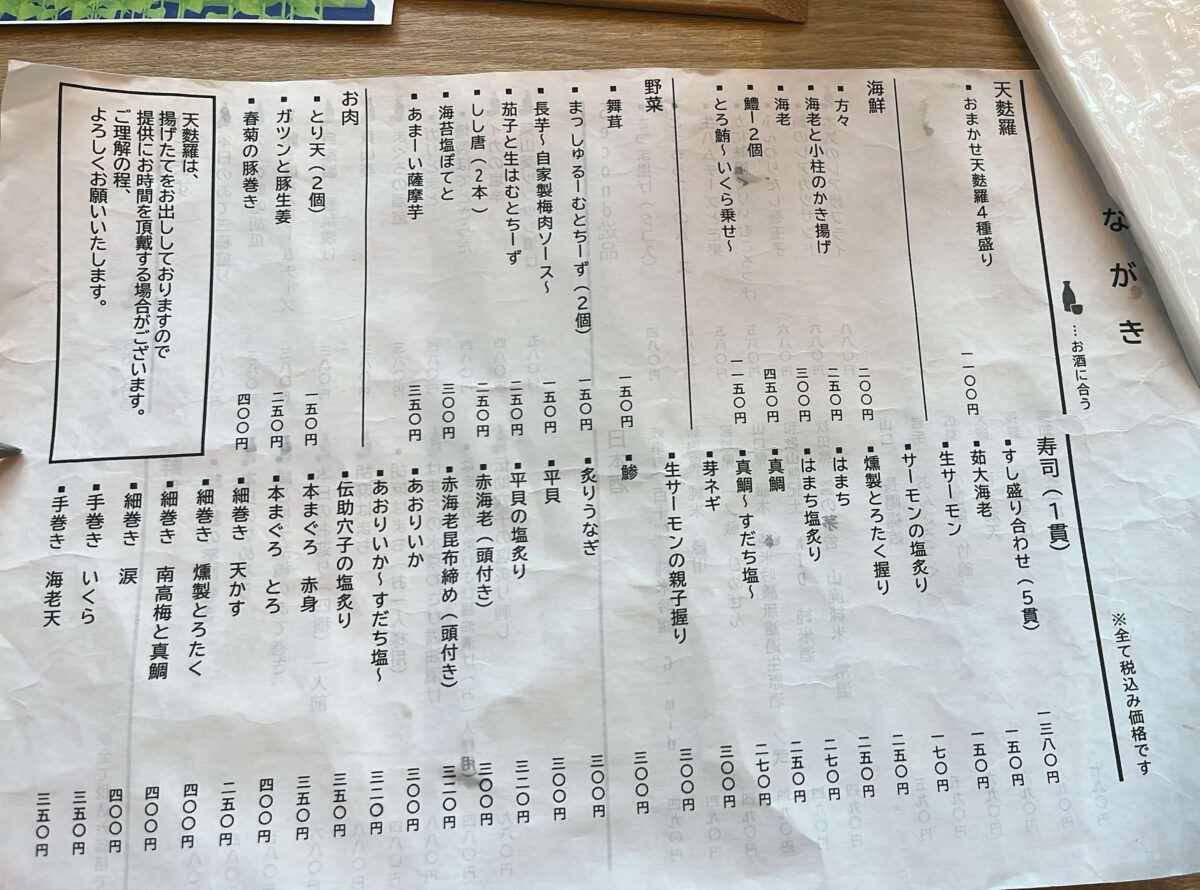 ながき
…お酒に合う
※全て税込み価格です
天麩羅
▪おまかせ天麩羅4種盛り 一一〇〇円
海鮮
▪方々 二〇〇円
▪海老と小柱のかき揚げ 二五〇円
▪海老 三〇〇円
▪鱧ー2個 四五〇円
▪とろ鮪〜いくら乗せ〜 一一五〇円
野菜
▪舞茸 一五〇円
▪まっしゅるーむとちーず(2個) 一五〇円
▪長芋〜自家製梅肉ソース〜 一五〇円
▪茄子と生はむとちーず 二五〇円
▪しし唐(2本) 二五〇円
▪海苔塩ぽてと 三〇〇円
▪あまーい薩摩芋 三五〇円
お肉
▪とり天(2個) 一五〇円
▪ガツンと豚生姜 二五〇円
▪春菊の豚巻き 四〇〇円
天麩羅は、
揚げたてをお出ししておりますので
提供にお時間を頂戴する場合がございます。
ご理解の程、
よろしくお願いいたします。
寿司(1貫)
▪すし盛り合わせ(5貫) 一三八〇円
▪茹大海老 一五〇円
▪生サーモン 一五〇円
▪サーモンの塩炙り 一七〇円
▪燻製とろたく握り 二五〇円
▪はまち 二五〇円
▪はまち塩炙り 二七〇円
▪真鯛 二五〇円
▪真鯛〜すだち塩〜 二七〇円
▪芽ネギ 三〇〇円
▪生サーモンの親子握り 三〇〇円
▪鯵 三〇〇円
▪炙りうなぎ 三〇〇円
▪平貝 三〇〇円
▪平貝の塩炙り 三二〇円
▪赤海老(頭付き) 三〇〇円
▪赤海老昆布締め(頭付き) 三二〇円
▪あおりいか 三〇〇円
▪あおりいか〜すだち塩〜 三二〇円
▪伝助穴子の塩炙り 三五〇円
▪本まぐろ 赤身 三五〇円
▪本まぐろ とろ 四〇〇円
▪細巻き 天かす 二五〇円
▪細巻き 燻製とろたく 四〇〇円
▪細巻き 南高梅と真鯛 四〇〇円
▪細巻き 涙 四〇〇円
▪手巻き いくら 三五〇円
▪手巻き 海老天 三五〇円